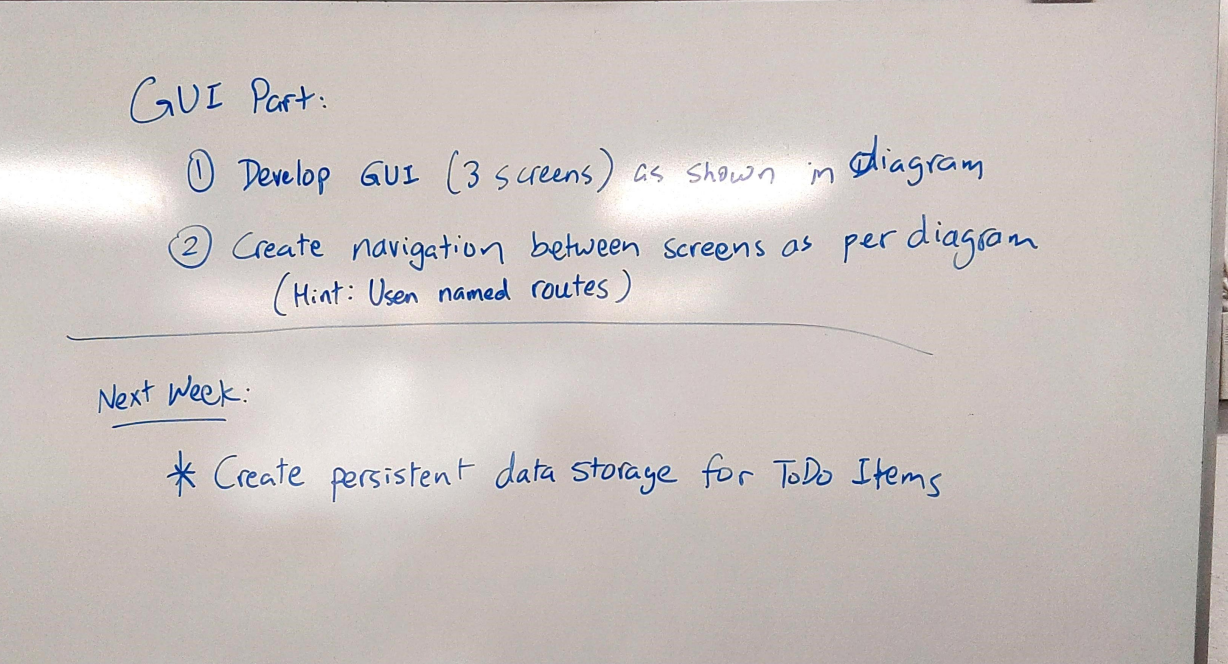 GUI Part:
① Develop GUI (3 screens) as shown in diagram
② Create navigation between screens as per diagram
(Hint: Usen named routes)
Next Week:
* Create persistent data storage for ToDo Items